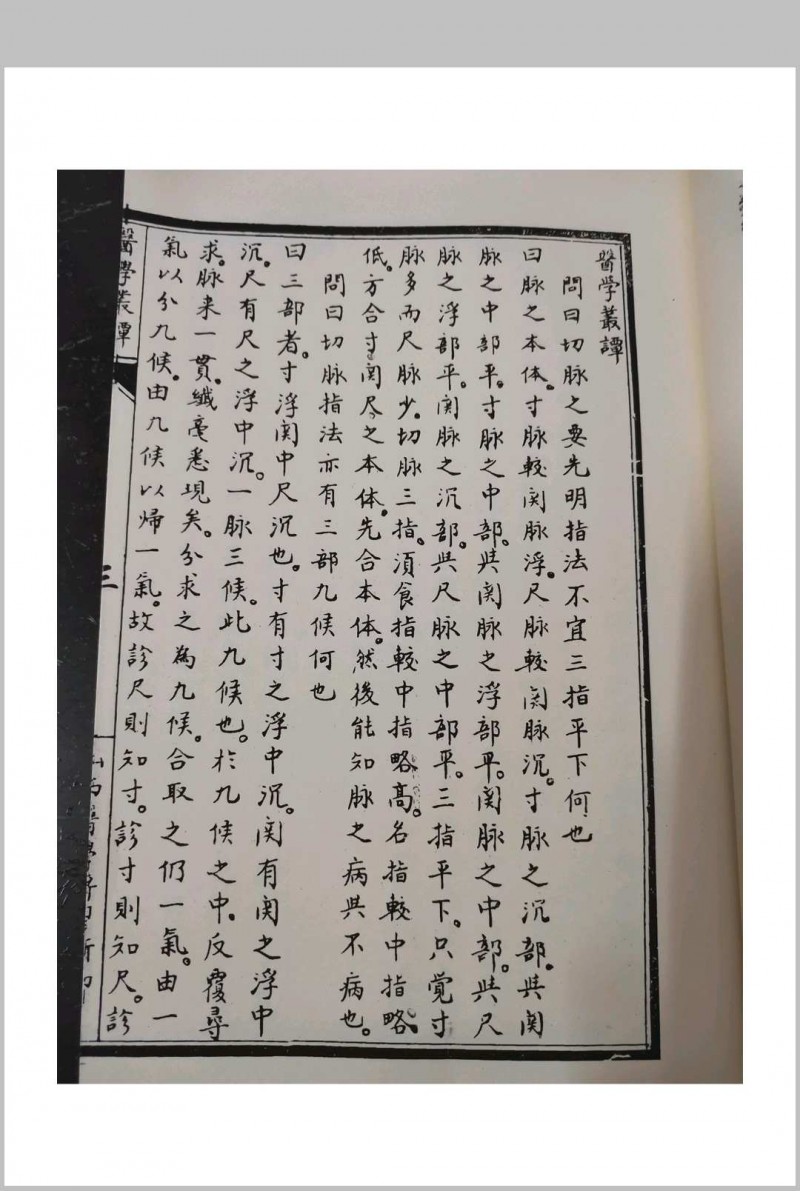 醫學叢譚
問曰切脉之要先明指法不宜三指平下何也
曰脉之本体。寸脉較関脉浮。尺脉較関脉沉。寸脉之沉部。與関
脉之中部平。寸脉之中部。與関脉之浮部平。関脉之中部。與尺
脉之浮部平。関脉之沉部。與尺脉之中部平。三指平下。只覚寸
脉多而尺脉少。切脉三指。須食指較中指略高。名指較中指略
低。方合寸関尺之本体。先合本体。然後能知脉之病與不病也。
問曰切脉指法亦有三部九候何也
曰三部者。寸浮関中尺沉也。寸有寸之浮中沉。関有関之浮中
沉。尺有尺之浮中沉。一脉三候。此九候也。於九候之中。反覆尋
求。脉来一貫。纖毫悉現矣。分求之為九候。合取之仍一氣。由一
氣以分九候。由九候以歸一氣。故診尺則知寸。診寸則知尺。診
醫學叢譚
三